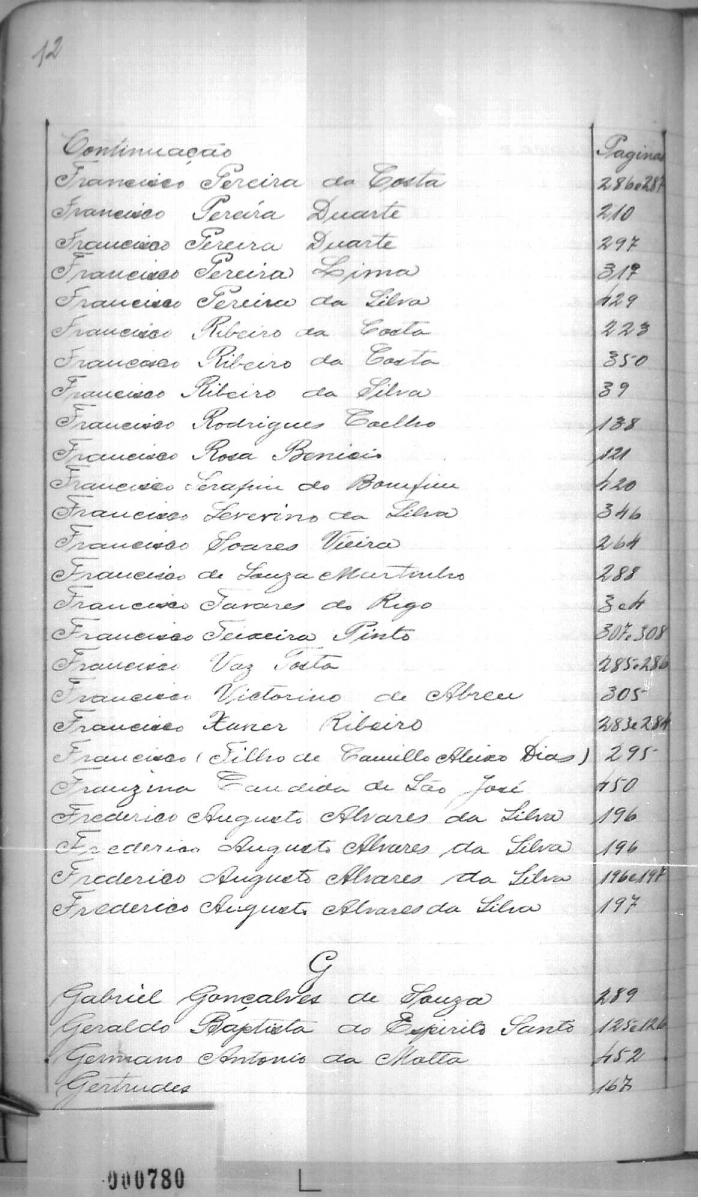 12
Continuação Paginas
Francisco Pereira da Costa 286e287
Francisco Pereira Duarte 210
Francisco Pereira Duarte 297
Francisco Pereira Lima 317
Francisco Pereira da Silva 429
Francisco Ribeiro da Costa 223
Francisco Ribeiro da Costa 350
Francisco Ribeiro da Silva 39
Francisco Rodrigues Coelho 138
Francisco Rosa Benicio 121
Francisco Serafim do Bomfim 420
Francisco Severino da Silva 346
Francisco Soares Vieira 264
Francisco de Souza Martinho 288
Francisco Tavares do Rego 3e4
Francisco Teixeira Pinto 307e308
Francisco Vaz Tosta 285e286
Francisco Victorino de Abreu 305
Francisco Xavier Ribeiro 283e284
Francisco (Filho de Camillo Aleixo Dias) 295
Franzina Candida de São José 450
Frederico Augusto Alvares da Silva 196
Frederico Augusto Alvares da Silva 196
Frederico Augusto Alvares da Silva 196e197
Frederico Augusto Alvares da Silva 197
G
Gabriel Gonçalves de Souza 289
Geraldo Baptista do Espirito Santo 125e126
Germano Antonio da Motta 452
Gertrudes 167
000780